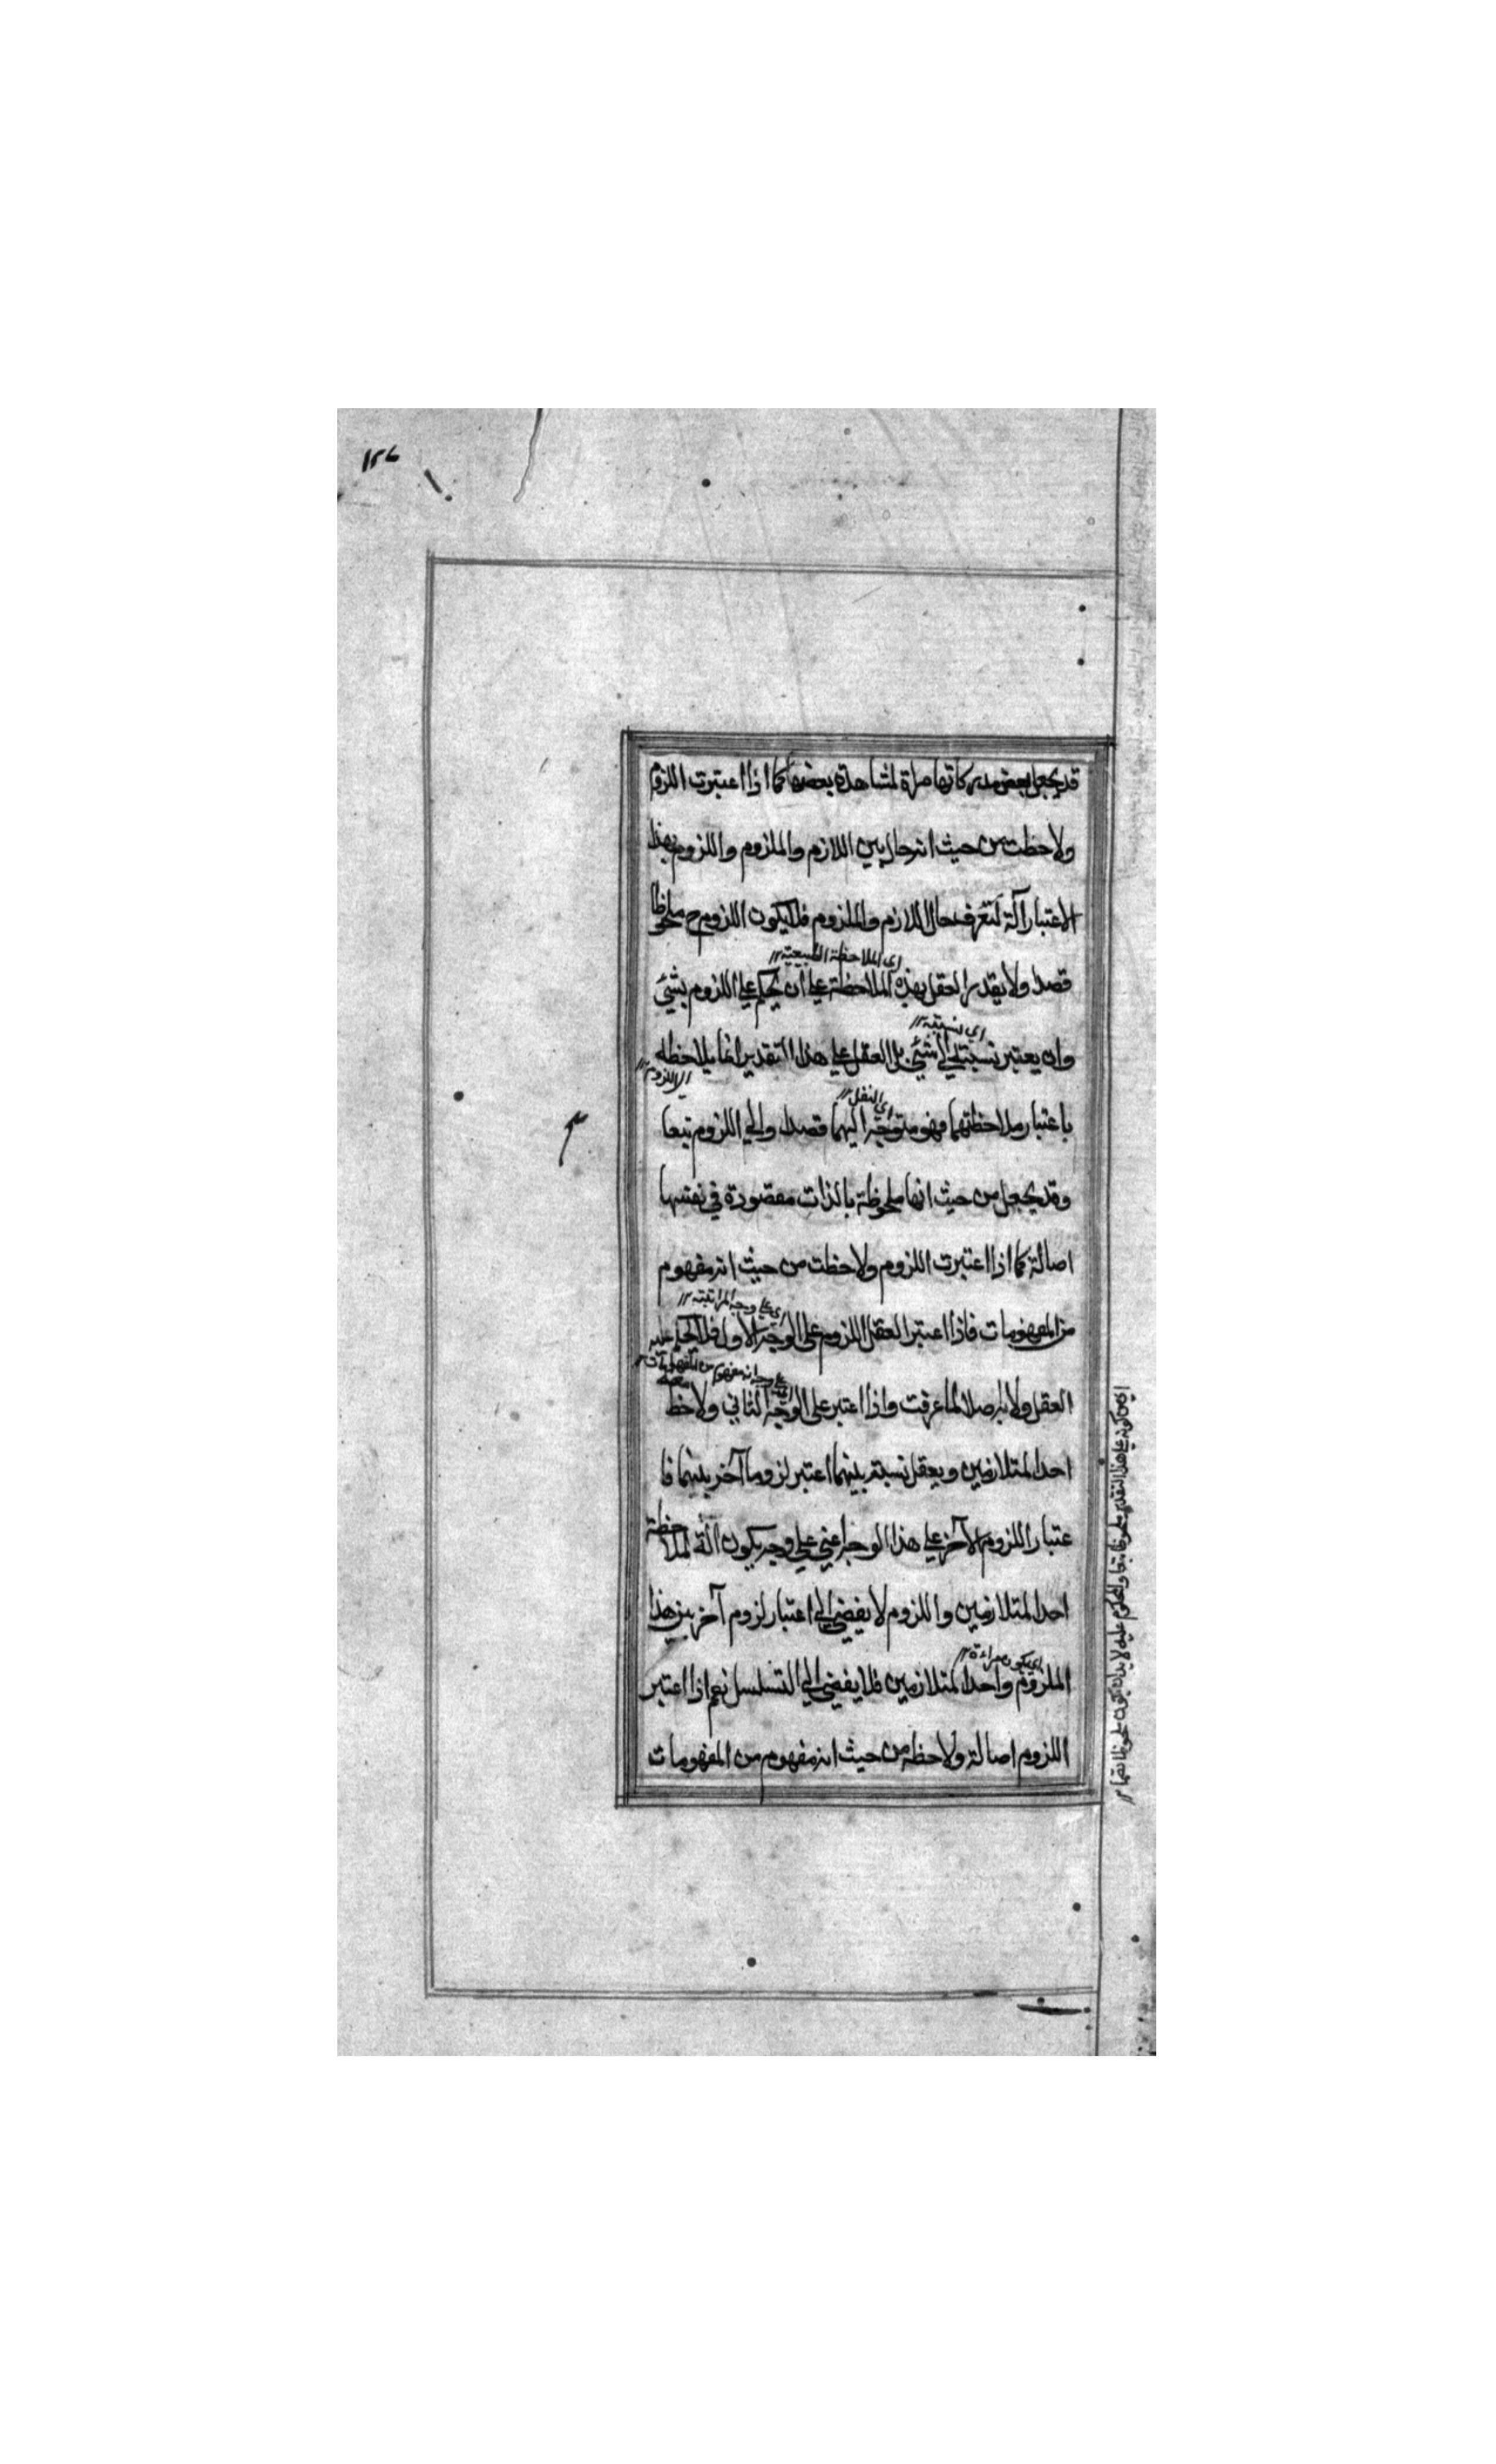 ١٢٦
قد يجعل بعض مدركاتها مراة لمشاهدة بعضها كما اذا اعتبرت اللزوم
ولاحظت من حيث انه حال بين اللازم والملزوم واللزوم بهذا
الاعتبار آلة لتعرف حال اللازم والملزوم فلا يكون اللزوم ح ملحوظا
اي الملاحظة الطبيعية
قصدا ولا يقدر العقل بهذه الملاحظة على ان يحكم على اللزوم بشئ
اي نسبته
وان يعتبر نسبته الى شئ بل العقل على هذا التقدير انما يلاحظه
اي اللزوم
باعتبار ملاحظتهما فهو متوجه اليهما قصدا والى اللزوم تبعا
وقد يجعل من حيث انها ملحوظة بالذات مقصودة في نفسها
اصالة كما اذا اعتبرت اللزوم ولاحظت من حيث انه مفهوم
اي على وجه المراتية
من المفهومات فاذا اعتبر العقل اللزوم على الوجه الاول فلا يحكم عليه
اي على وجه انه مفهوم من المفهومات
العقل ولا به اصلا لما عرفت واذا اعتبر على الوجه الثاني ولاحظ معه
احد المتلازمين ويعقل نسبته بينهما اعتبر لزوما آخر بينهما فا
عتبار اللزوم الآخر على هذا الوجه اعني على وجه يكون آلة لملاحظة
احد المتلازمين واللزوم لا يفضي الى اعتبار لزوم آخر بين هذا
اي يكون مراءة
الملزوم واحد المتلازمين فلا يفضي الى التسلسل نعم اذا اعتبر
اللزوم اصالة ولاحظه من حيث انه مفهوم من المفهومات
على هذا التقدير ملحوظا تبعا والمحكوم عليه لا بد ان يكون ملحوظا